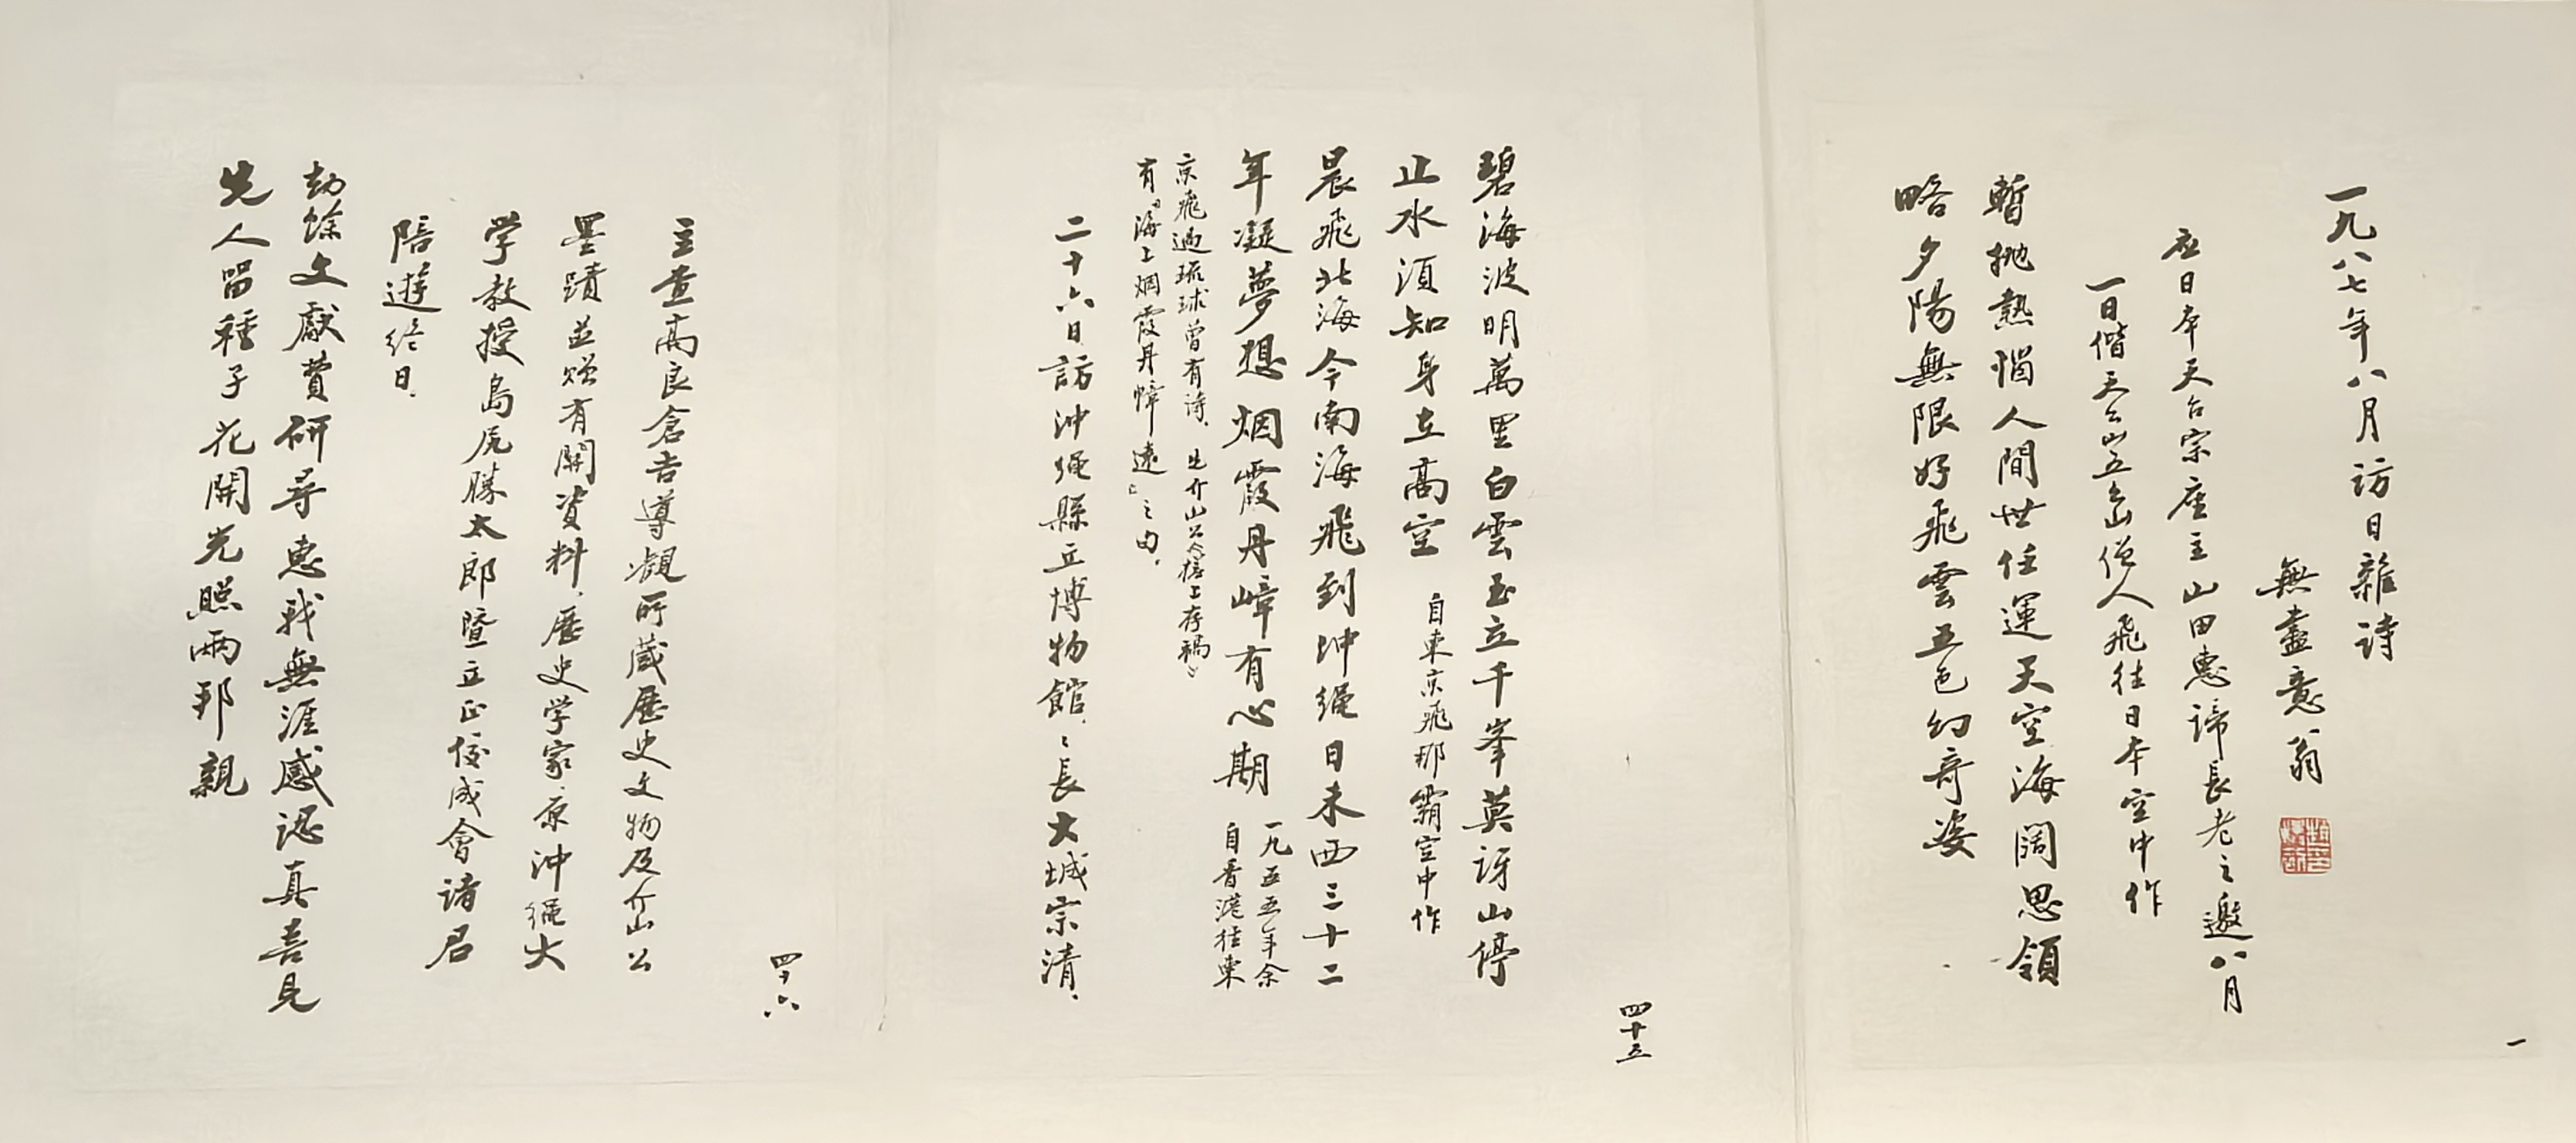 一九八七年八月訪日雜詩
無盡意翁
應日本天台宗座主山田惠諦長老之邀八月
一日偕天台山五台山僧人飛往日本空中作
暫拋熱惱人間世任運天空海闊思領
略夕陽無限好飛雲五色幻奇姿
一
碧海波明萬里白雲玉立千峯莫訝山停
止水須知身立高空 自東京飛那霸空中作
晨飛北海今南海飛到沖繩日未西三十二
年凝夢想烟霞丹嶂有心期 一九五五年余
自香港往東
京飛過琉球曾有詩、先介山公《槎上存稿》
有「海上烟霞丹嶂遠」之句.
二十六日訪沖繩縣立博物館、〻長大城宗清、
四十五
主查高良倉吉導觀所藏歷史文物及介山公
墨蹟並贈有關資料、歷史学家、原沖繩大
学教授島尻勝太郎暨立正佼成會諸君
陪遊終日.
劫餘文獻費研尋惠我無涯感認真喜見
先人留種子花開光照兩邦親
四十六